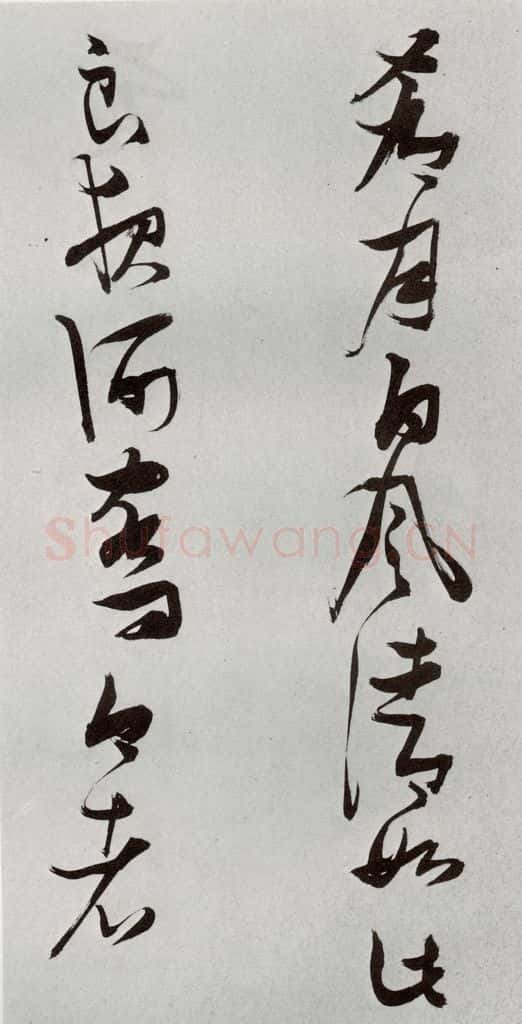 肴月白風清如此
良夜何客曰今者
Shufawang.CN